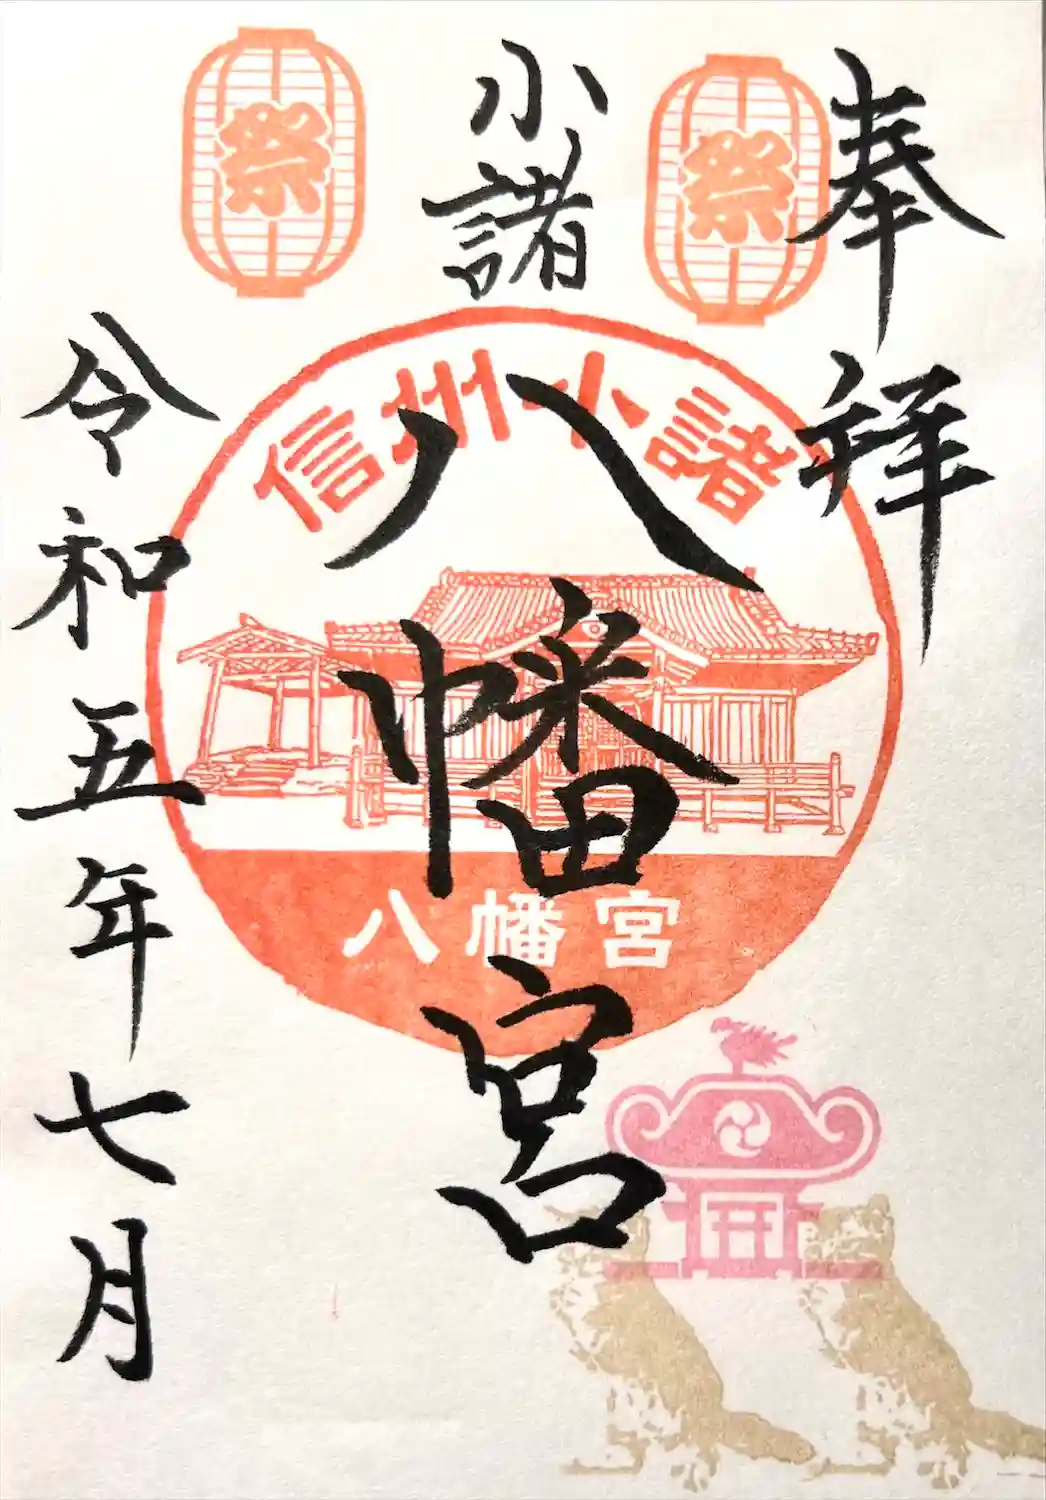 奉拝
祭
小諸
八幡宮
祭
信州小諸
八幡宮
令和五年七月